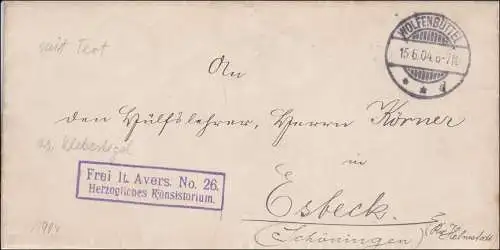 mit Text
WOLFENBÜTTEL
15.6.04.6-7N.
* * d
An
den Hülfslehrer, Herrn Körner
rs. Klebesiegel
in
Frei lt. Avers. No. 26.
Herzogliches Konsistorium.
Esbeck.
(Schöningen)
Kr. Helmstedt
1904